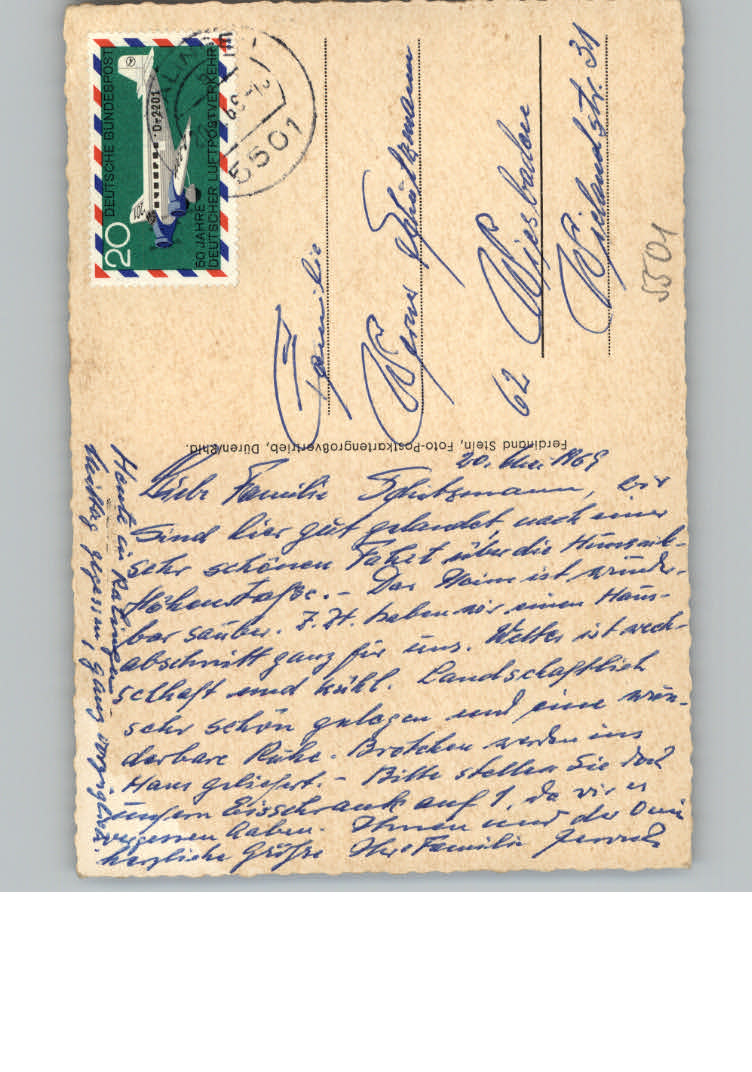 20
DEUTSCHE BUNDESPOST
D-2201
50 JAHRE
DEUTSCHER LUFTPOSTVERKEHR
5501
Familie
Werner Schützmann
62 Wiesbaden
Wielandstr. 31
5501
Ferdinand Stein, Foto-Postkartengroßvertrieb, Düren/Rhld.
20. 1969
Liebe Familie Schützmann, wir
sind hier gut gelandet, nach einer
sehr schönen Fahrt über die Hunsrück-
Höhenstraße. – Das Heim ist wunder-
bar sauber. Z. Zt. haben wir einen Haus-
abschnitt ganz für uns. Wetter ist wech-
selhaft und kühl. Landschaftlich
sehr schön gelegen und eine wun-
derbare Ruhe. Brötchen werden ins
Haus geliefert. – Bitte stellen Sie doch
unsern Eisschrank auf 1, da wir es
vergessen haben. Ihnen und der
herzliche Grüße Ihre Familie
Heute in
Mittag gegessen, ganz